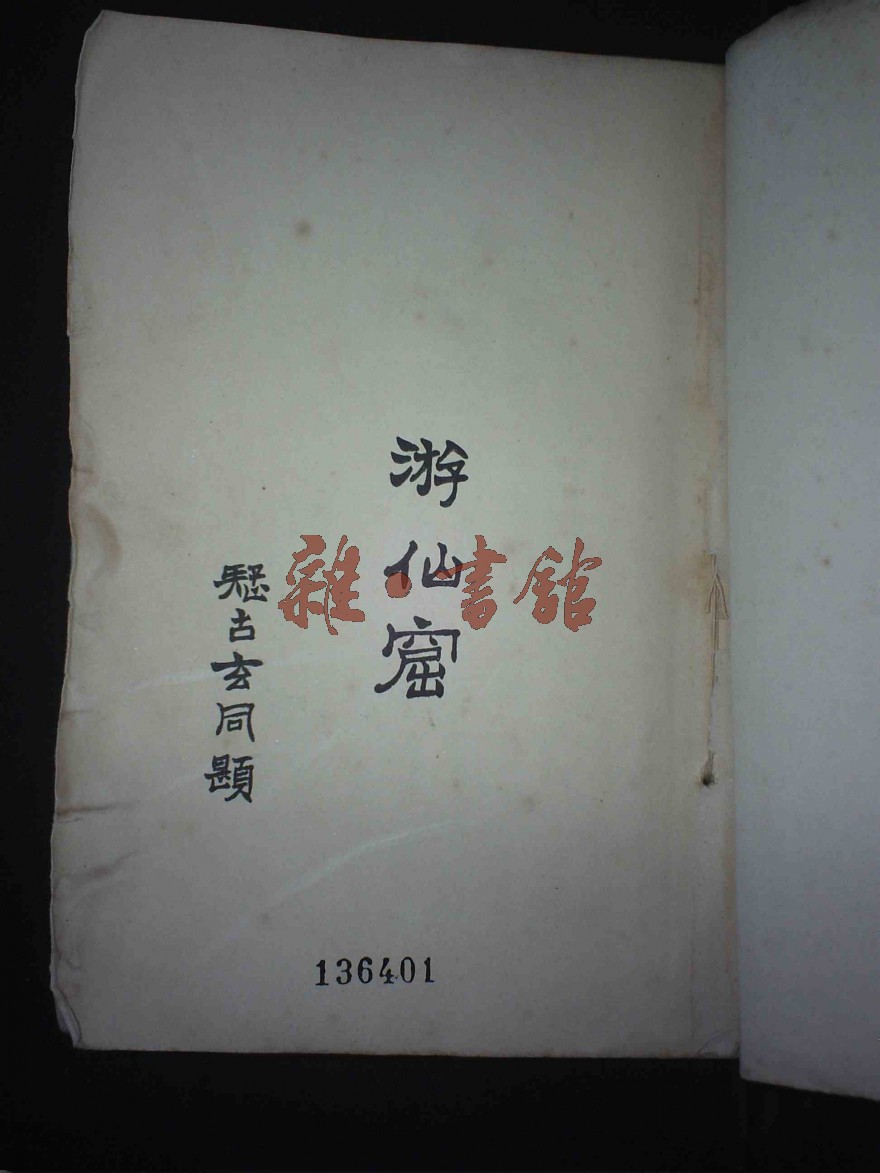 游仙窟
疑古玄同題
雜·書館
136401